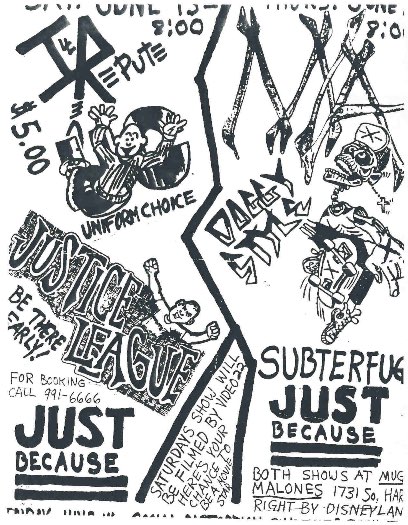 SAT. JUNE 13
8:00
ILL REPUTE
$5.00
UNIFORM CHOICE
JUSTICE
LEAGUE
BE THERE
EARLY!
FOR BOOKING
CALL 991-6666
JUST
BECAUSE
SATURDAYS SHOW WILL
BE FILMED BY VIDEO 22
HERE'S YOUR
CHANCE TO
BE A
THURS. JUNE
8:0
DOGGY
STYLE
SUBTERFUG
JUST
BECAUSE
BOTH SHOWS AT MUG
MALONES 1731 So. HAR
RIGHT BY DISNEYLAN
FRIDAY JUNE SOCIAL DISTORTION